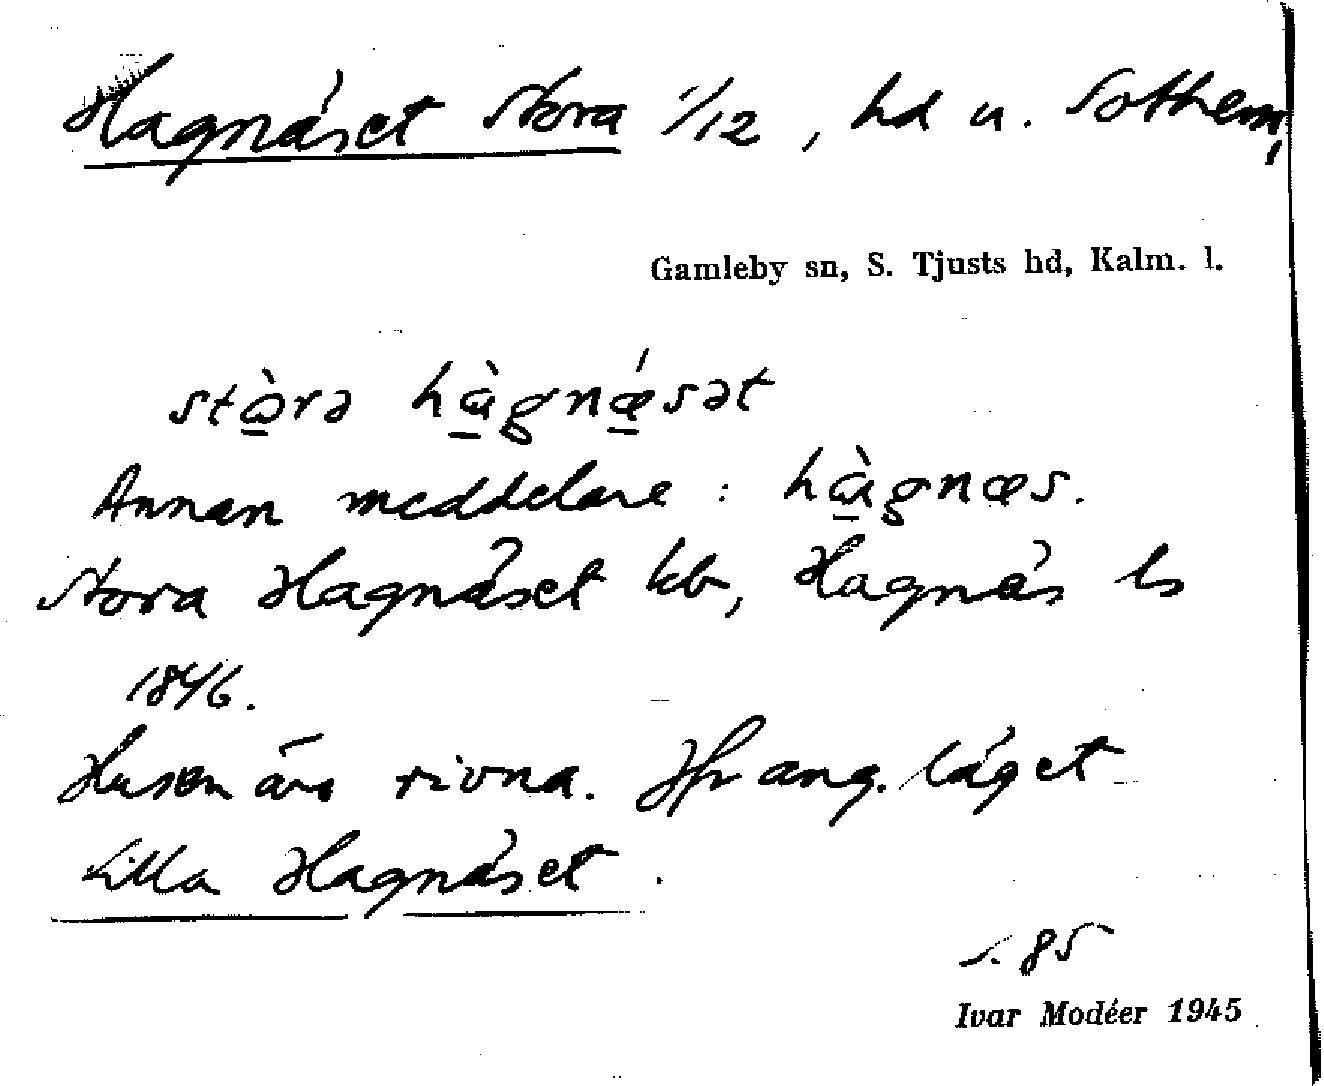 Hagnäset Stora 1/12, hd u. Sothem,
Gamleby sn, S. Tjusts hd, Kalm. l.
stɷ̀rə hɑ̀gnǽsət
Annan meddelare: hɑ̀gnæs.
Stora Hagnäset kb, Hagnäs ls
1846.
Husen äro rivna. Hfr ang. läget
Lilla Hagnäset.
s. 85
Ivar Modéer 1945